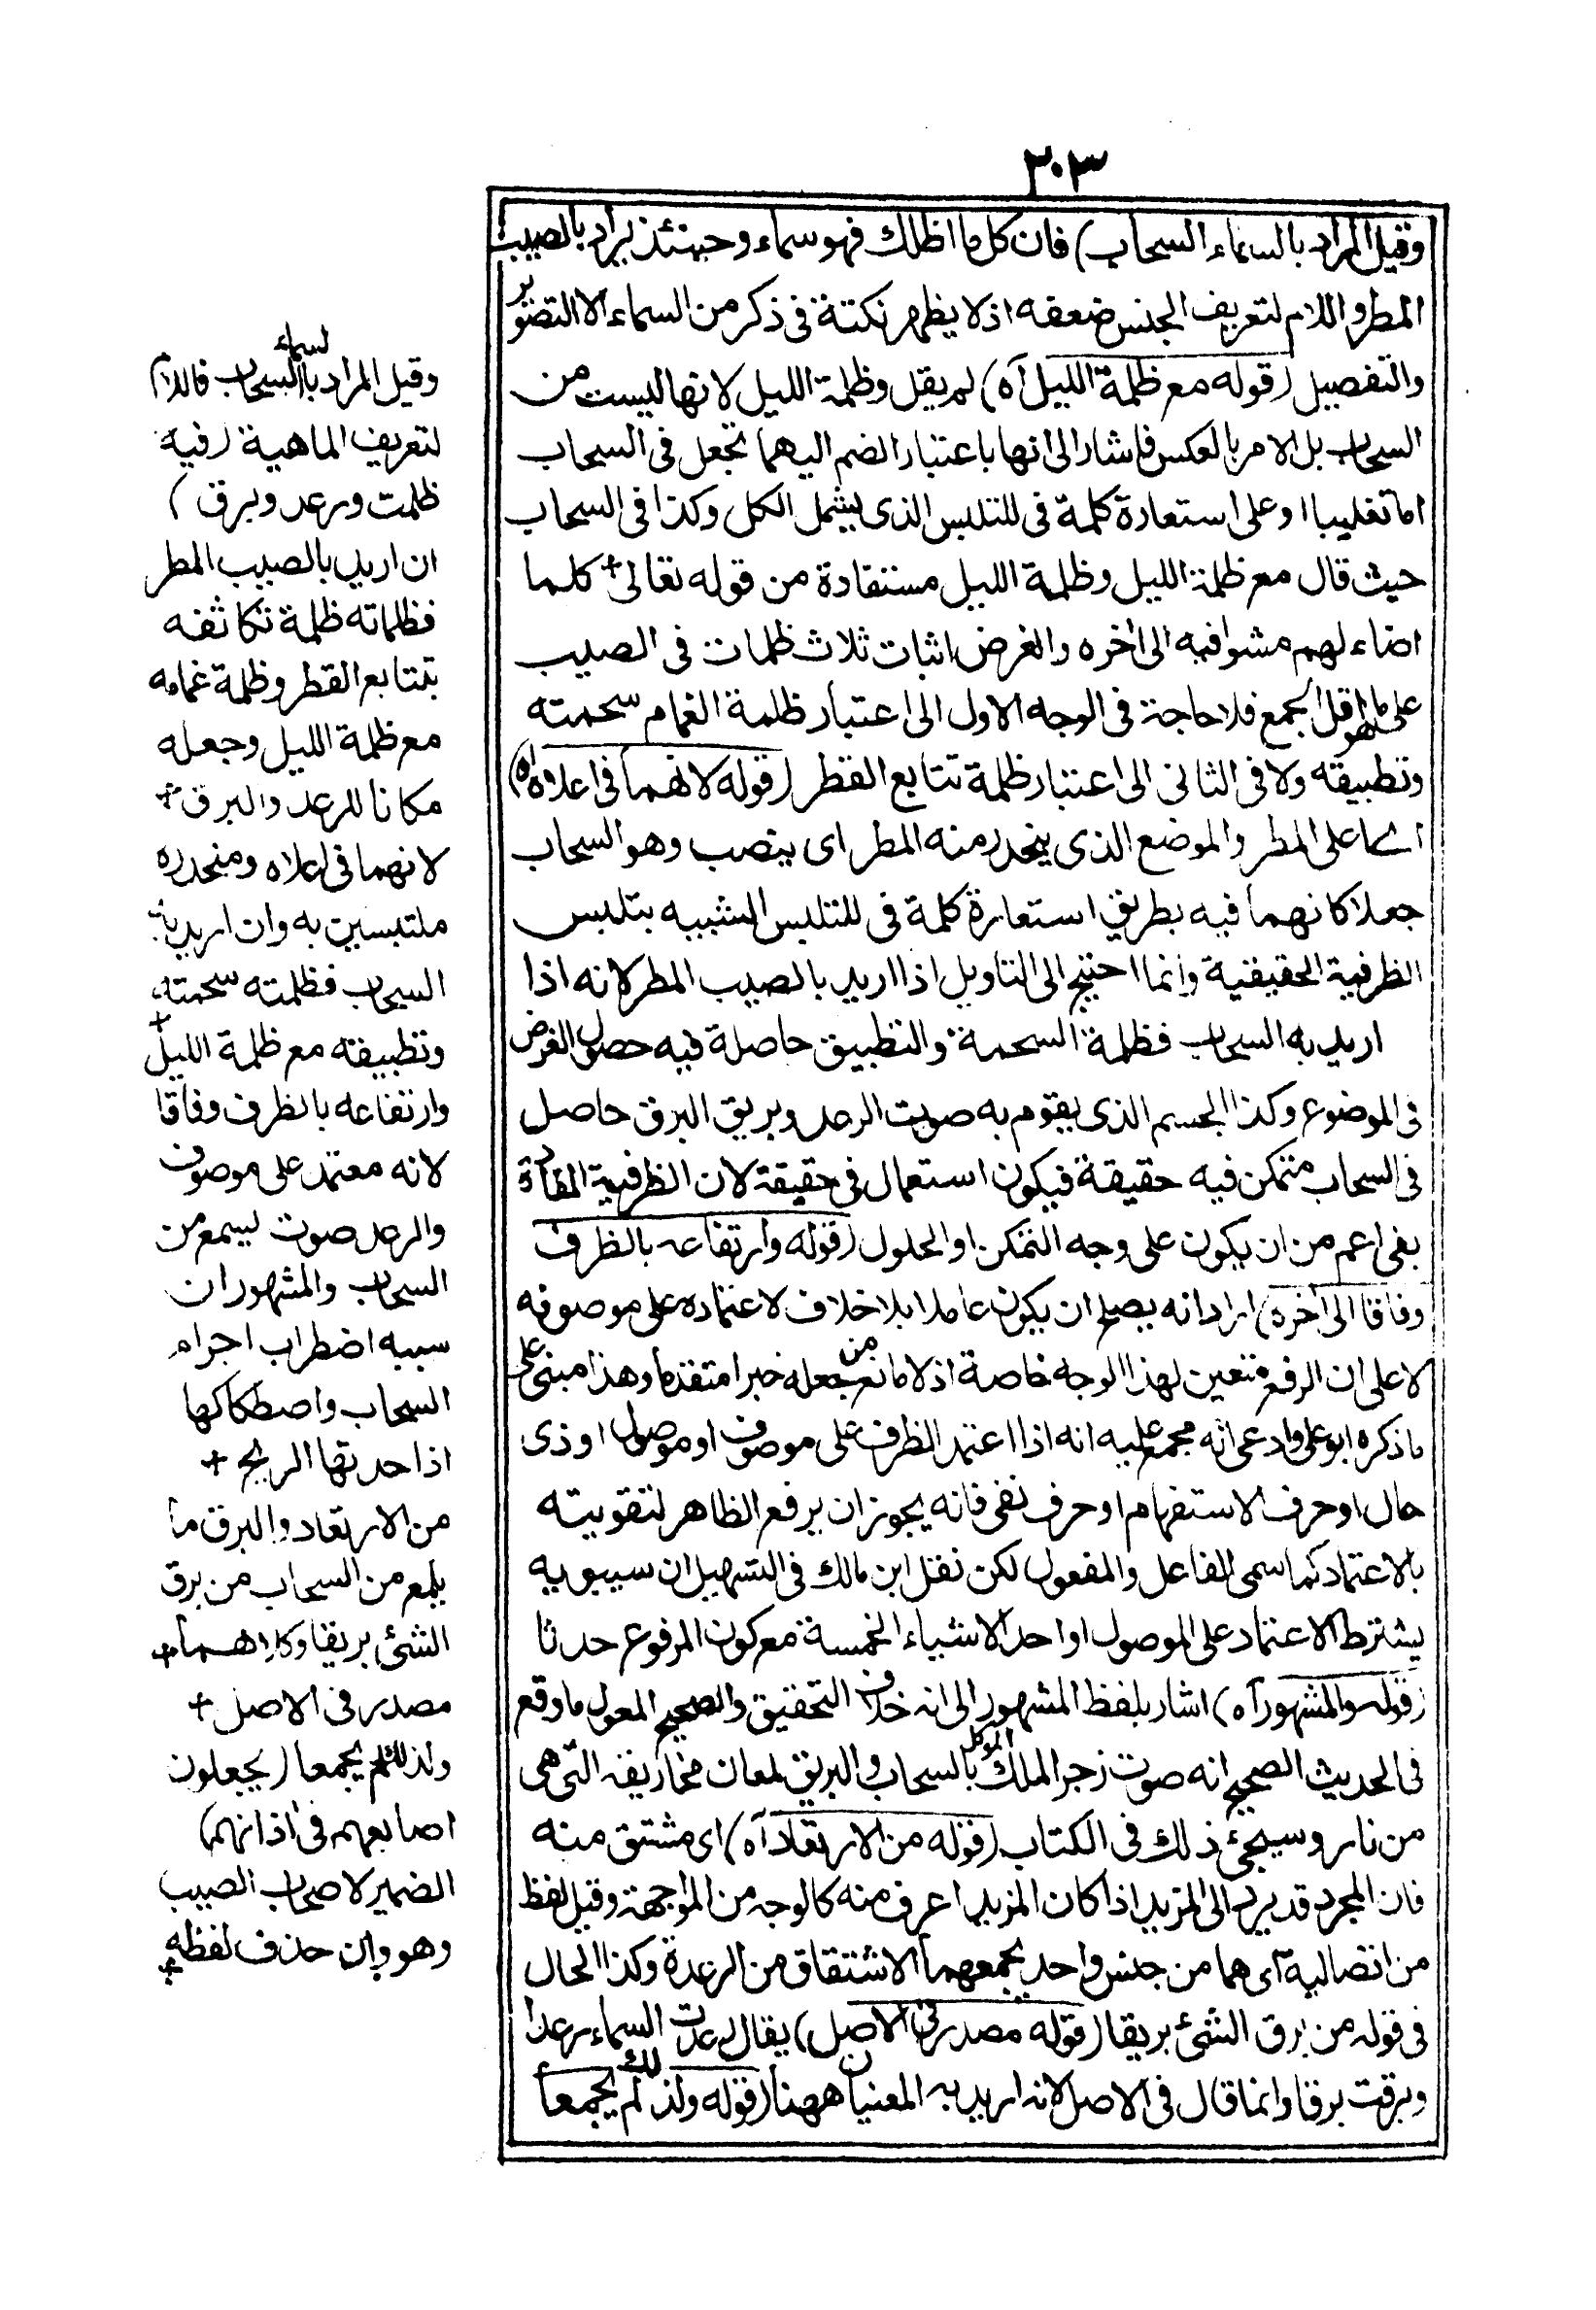 ٣٠٣
وقيل المراد بالسماء السحاب) فان كل ما اظلك فهو سماء وحينئذ يراد بالصيب
المطر واللام لتعريف الجنس ضعفه اذ لا يظهر نكتة فى ذكر من السماء الا التصوير
والتفصيل (قوله مع ظلمة الليل آه) لم يقل وظلمة الليل لانها ليست من
السحاب بل الامر بالعكس فاشار الى انها باعتبار الضم اليهما تجعل فى السحاب
اما تغليبا او على استعارة كلمة فى للتلبس الذى يشمل الكل وكذا فى السحاب
حيث قال مع ظلمة الليل وظلمة الليل مستفادة من قوله تعالى + كلما
اضاء لهم مشوا فيه الى اخره والغرض اثبات ثلاث ظلمات فى الصيب
على ما هو اقل الجمع فلا حاجة فى الوجه الاول الى اعتبار ظلمة الغمام سحمته
وتطبيقه ولا فى الثانى الى اعتبار ظلمة تتابع القطر (قوله لانهما فى اعلاه آه)
اى اعلى المطر والموضع الذى ينحدر منه المطر اى ينصب وهو السحاب
جعلا كانهما فيه بطريق استعارة كلمة فى للتلبس الشبيه بتلبس
الظرفية الحقيقية وانما احتيج الى التاويل اذا اريد بالصيب المطر لانه اذا
اريد به السحاب فظلمة السحمة والتطبيق حاصلة فيه حصول العرض
فى الموضوع وكذا الجسم الذى يقوم به صوت الرعد وبريق البرق حاصل
فى السحاب متمكن فيه حقيقة فيكون استعمال فى حقيقة لان الظرفية المفادة
بفى اعم من ان يكون على وجه التمكن او الحلول (قوله وارتفاعه بالظرف
وفاقا الى اخره) اراد انه يصلح ان يكون عاملا بلا خلاف لاعتماده على موصوفه
لا على ان الرفع متعين لهذا الوجه خاصة اذ لا مانع من جعله خبرا متقدما وهذا مبنى على
ما ذكره ابو على وادعى انه مجمع عليه انه اذا اعتمد الظرف على موصوف او موصول او ذى
حال او حرف الاستفهام او حرف نفى فانه يجوز ان يرفع الظاهر لتقويته
بالاعتماد كما سمى الفاعل والمفعول لكن نقل ابن مالك فى التسهيل ان سيبويه
يشترط الاعتماد على الموصول او احد الاشياء الخمسة مع كون المرفوع حدثا
(قوله والمشهور آه) اشار بلفظ المشهور الى انه خلاف التحقيق والصحيح المعول ما وقع
فى الحديث الصحيح انه صوت زجر الملك الموكل بالسحاب والبريق لمعان مخاريقه التى هى
من نار وسيجئ ذلك فى الكتاب (قوله من الارتعاد آه) اى مشتق منه
فان المجرد قد يرد الى المزيد اذا كان المزيد اعرف منه كالوجه من المواجهة وقيل لفظ
من اتصالية اى هما من جنس واحد يجمعهما الاشتقاق من الرعدة وكذا الحال
فى قوله من برق الشئ بريقا (قوله مصدر فى الاصل) يقال رعدت السماء رعدا
وبرقت برقا وانما قال فى الاصل لانه اريد به المعنيان ههنا (قوله ولذلك لم يجمعا
وقيل المراد بالسماء السحاب فاللام
لتعريف الماهية (فيه
ظلمت ورعد وبرق)
ان اريد بالصيب المطر
فظلماته ظلمة تكاثفه
بتتابع القطر وظلمة غمامه
مع ظلمة الليل وجعله
مكانا للرعد والبرق +
لانهما فى اعلاه ومنحدره
ملتبسين به وان اريد به
السحاب فظلمته سحمته
وتطبيقه مع ظلمة الليل +
وارتفاعه بالظرف وفاقا
لانه معتمد على موصوف
والرعد صوت يسمع من
السحاب والمشهور ان
سببه اضطراب اجرام
السحاب واصطكاكها
اذا حدتها الريح +
من الارتعاد والبرق ما
يلمع من السحاب من برق
الشئ بريقا وكلاهما +
مصدر فى الاصل +
ولذلك لم يجمعا (يجعلون
اصابعهم فى اذانهم)
الضمير لاصحاب الصيب
وهو وان حذف لفظه +